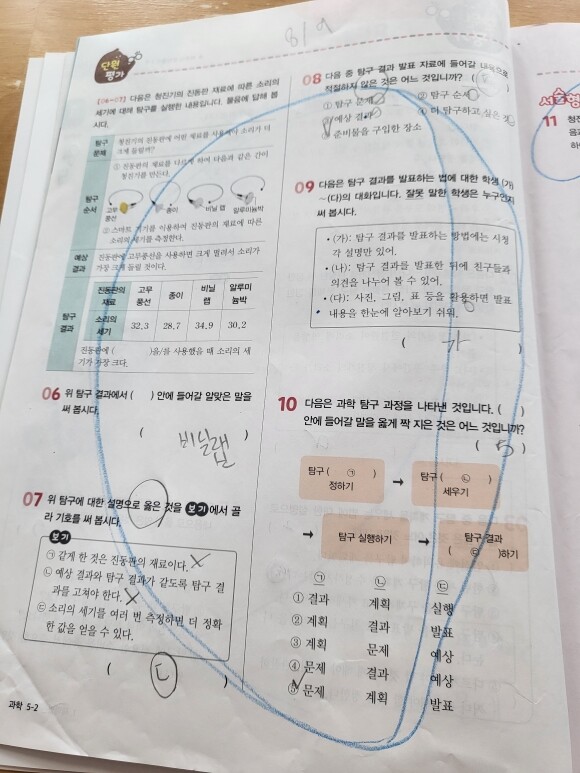 8/9
단원
평가
[06~07] 다음은 청진기의 진동판 재료에 따른 소리의
세기에 대해 탐구를 실행한 내용입니다. 물음에 답해 봅
시다.
탐구
문제
청진기의 진동판에 어떤 재료를 사용해야 소리가 더
크게 들릴까?
탐구
순서
① 진동판의 재료를 다르게 하여 다음과 같은 간이
청진기를 만든다.
고무
풍선
종이
비닐 랩
알루미늄박
② 스마트 기기를 이용하여 진동판의 재료에 따른
소리의 세기를 측정한다.
예상
결과
진동판에 고무풍선을 사용하면 크게 떨려서 소리가
가장 크게 들릴 것이다.
탐구
결과
진동판의 재료 고무풍선 종이 비닐랩 알루미늄박
소리의 세기 32.3 28.7 34.9 30.2
진동판에 ( )을/를 사용했을 때 소리의 세
기가 가장 크다.
06 위 탐구 결과에서 ( ) 안에 들어갈 알맞은 말을
써 봅시다.
( 비닐랩
07 위 탐구에 대한 설명으로 옳은 것을 보기 에서 골
라 기호를 써 봅시다.
보기
㉠ 같게 한 것은 진동판의 재료이다.
㉡ 예상 결과와 탐구 결과가 같도록 탐구 결
과를 고쳐야 한다.
㉢ 소리의 세기를 여러 번 측정하면 더 정확
한 값을 얻을 수 있다.
( ㄷ )
과학 5-2
08 다음 중 탐구 결과 발표 자료에 들어갈 내용으로
적절하지 않은 것은 어느 것입니까? ( )
① 탐구 문제 ② 탐구 순서
③ 예상 결과 ④ 더 탐구하고 싶은 것
⑤ 준비물을 구입한 장소
09 다음은 탐구 결과를 발표하는 법에 대한 학생 (가)
~(다)의 대화입니다. 잘못 말한 학생은 누구인지
써 봅시다.
• (가): 탐구 결과를 발표하는 방법에는 시청
각 설명만 있어.
• (나): 탐구 결과를 발표한 뒤에 친구들과
의견을 나누어 볼 수 있어.
• (다): 사진, 그림, 표 등을 활용하면 발표
내용을 한눈에 알아보기 쉬워.
( 가 )
10 다음은 과학 탐구 과정을 나타낸 것입니다. ( )
안에 들어갈 말을 옳게 짝 지은 것은 어느 것입니까?
( 5 )
탐구 ( ㉠ )
정하기
→
탐구 ( ㉡ )
세우기
→
탐구 실행하기
→
탐구 결과
( ㉢ )하기
㉠ ㉡ ㉢
① 결과 계획 실행
② 계획 결과 발표
③ 계획 문제 예상
④ 문제 결과 예상
⑤ 문제 계획 발표
서술형
11